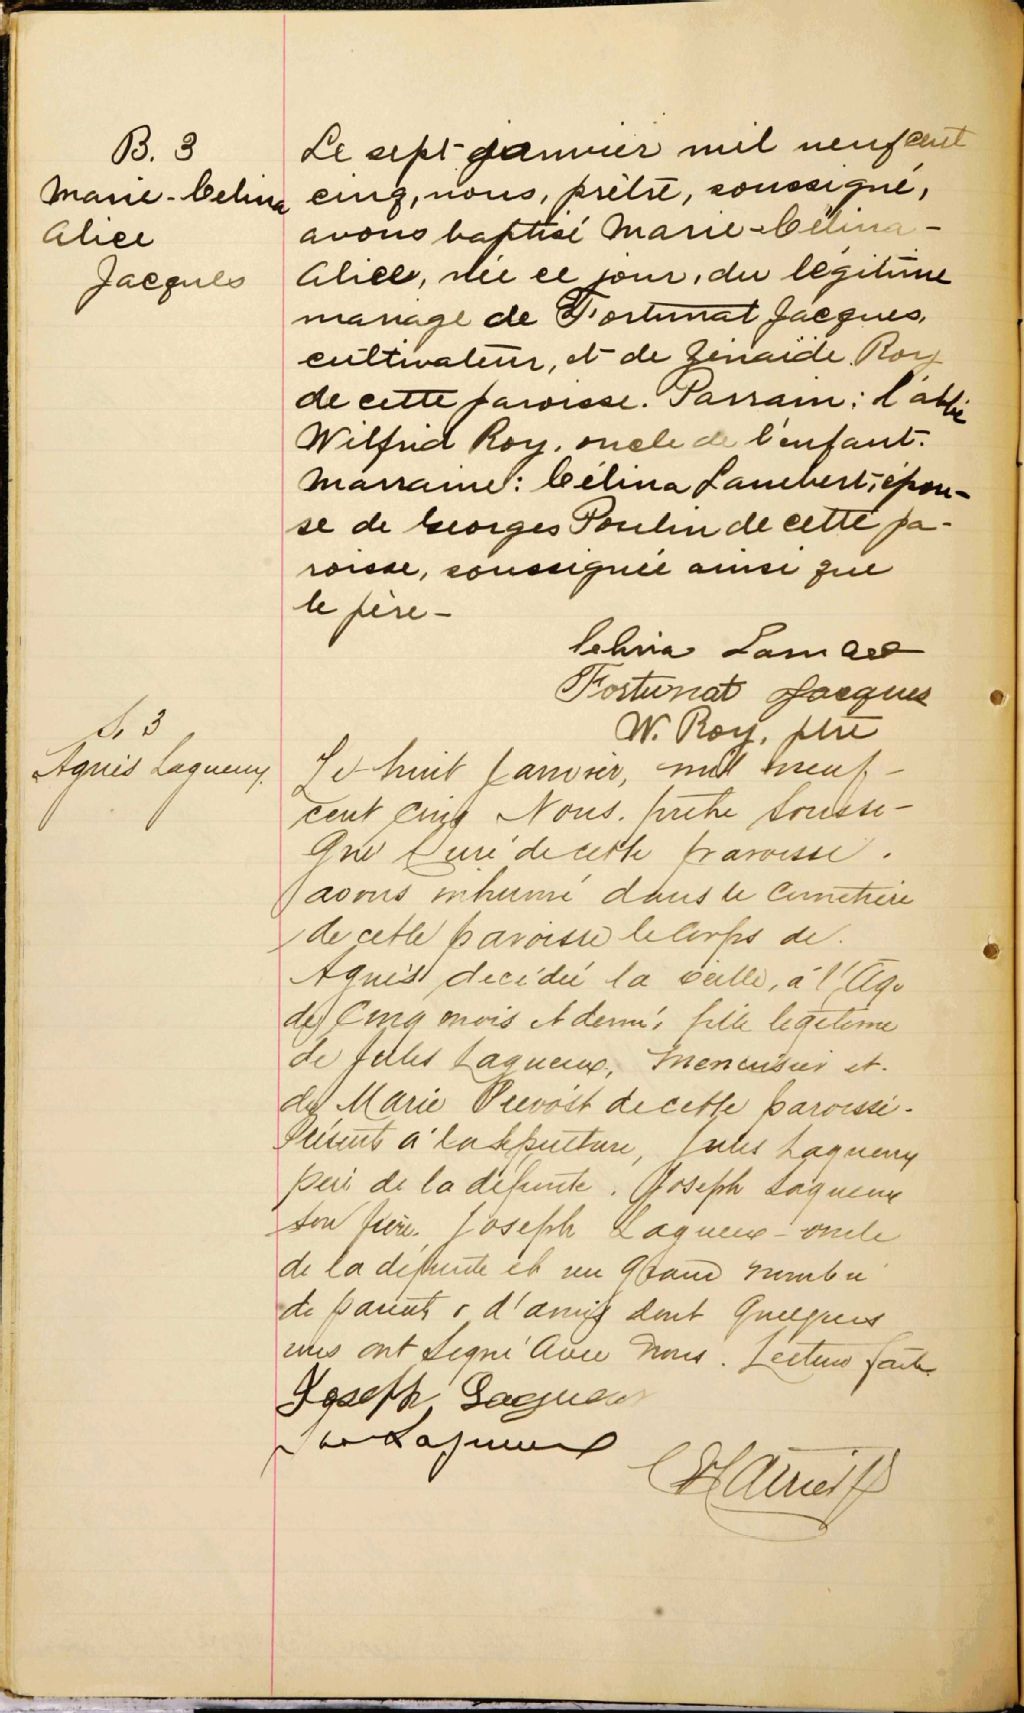 B. 3
Marie-Celina
Alice
Jacques
Le sept janvier mil neuf cent
cinq, nous, prêtre, soussigné,
avons baptisé Marie-Célina-
Alice, née ce jour, du légitime
mariage de Fortunat Jacques,
cultivateur, et de Zénaïde Roy
de cette paroisse. Parrain: l'abbé
Wilfrid Roy, oncle de l'enfant.
Marraine: Célina Lambert, épou-
se de Georges Poulin de cette pa-
roisse, soussignée ainsi que
le père-
Celina
Fortunat Jacques
W. Roy, ptre
S. 3
Agnès Lagueux
Le huit Janvier, mil neuf-
cent cinq Nous. prêtre soussi-
gné Curé de cette paroisse.
avons inhumé dans le cimetière
de cette paroisse le corps de
Agnès decédée la veille, à l'âge
de cinq mois et demi, fille legitime
de Jules Lagueux, menuisier et.
de Marie Prevost de cette paroisse.
Présents à la sépulture, Jules Lagueux
père de la défunte. Joseph Lagueux
son frère. Joseph Lagueux - oncle
de la défunte et un grand nombre
de parents & d'amis dont quelques
uns ont signé avec nous. Lecture faite.
Joseph Lagueux
Lagueux